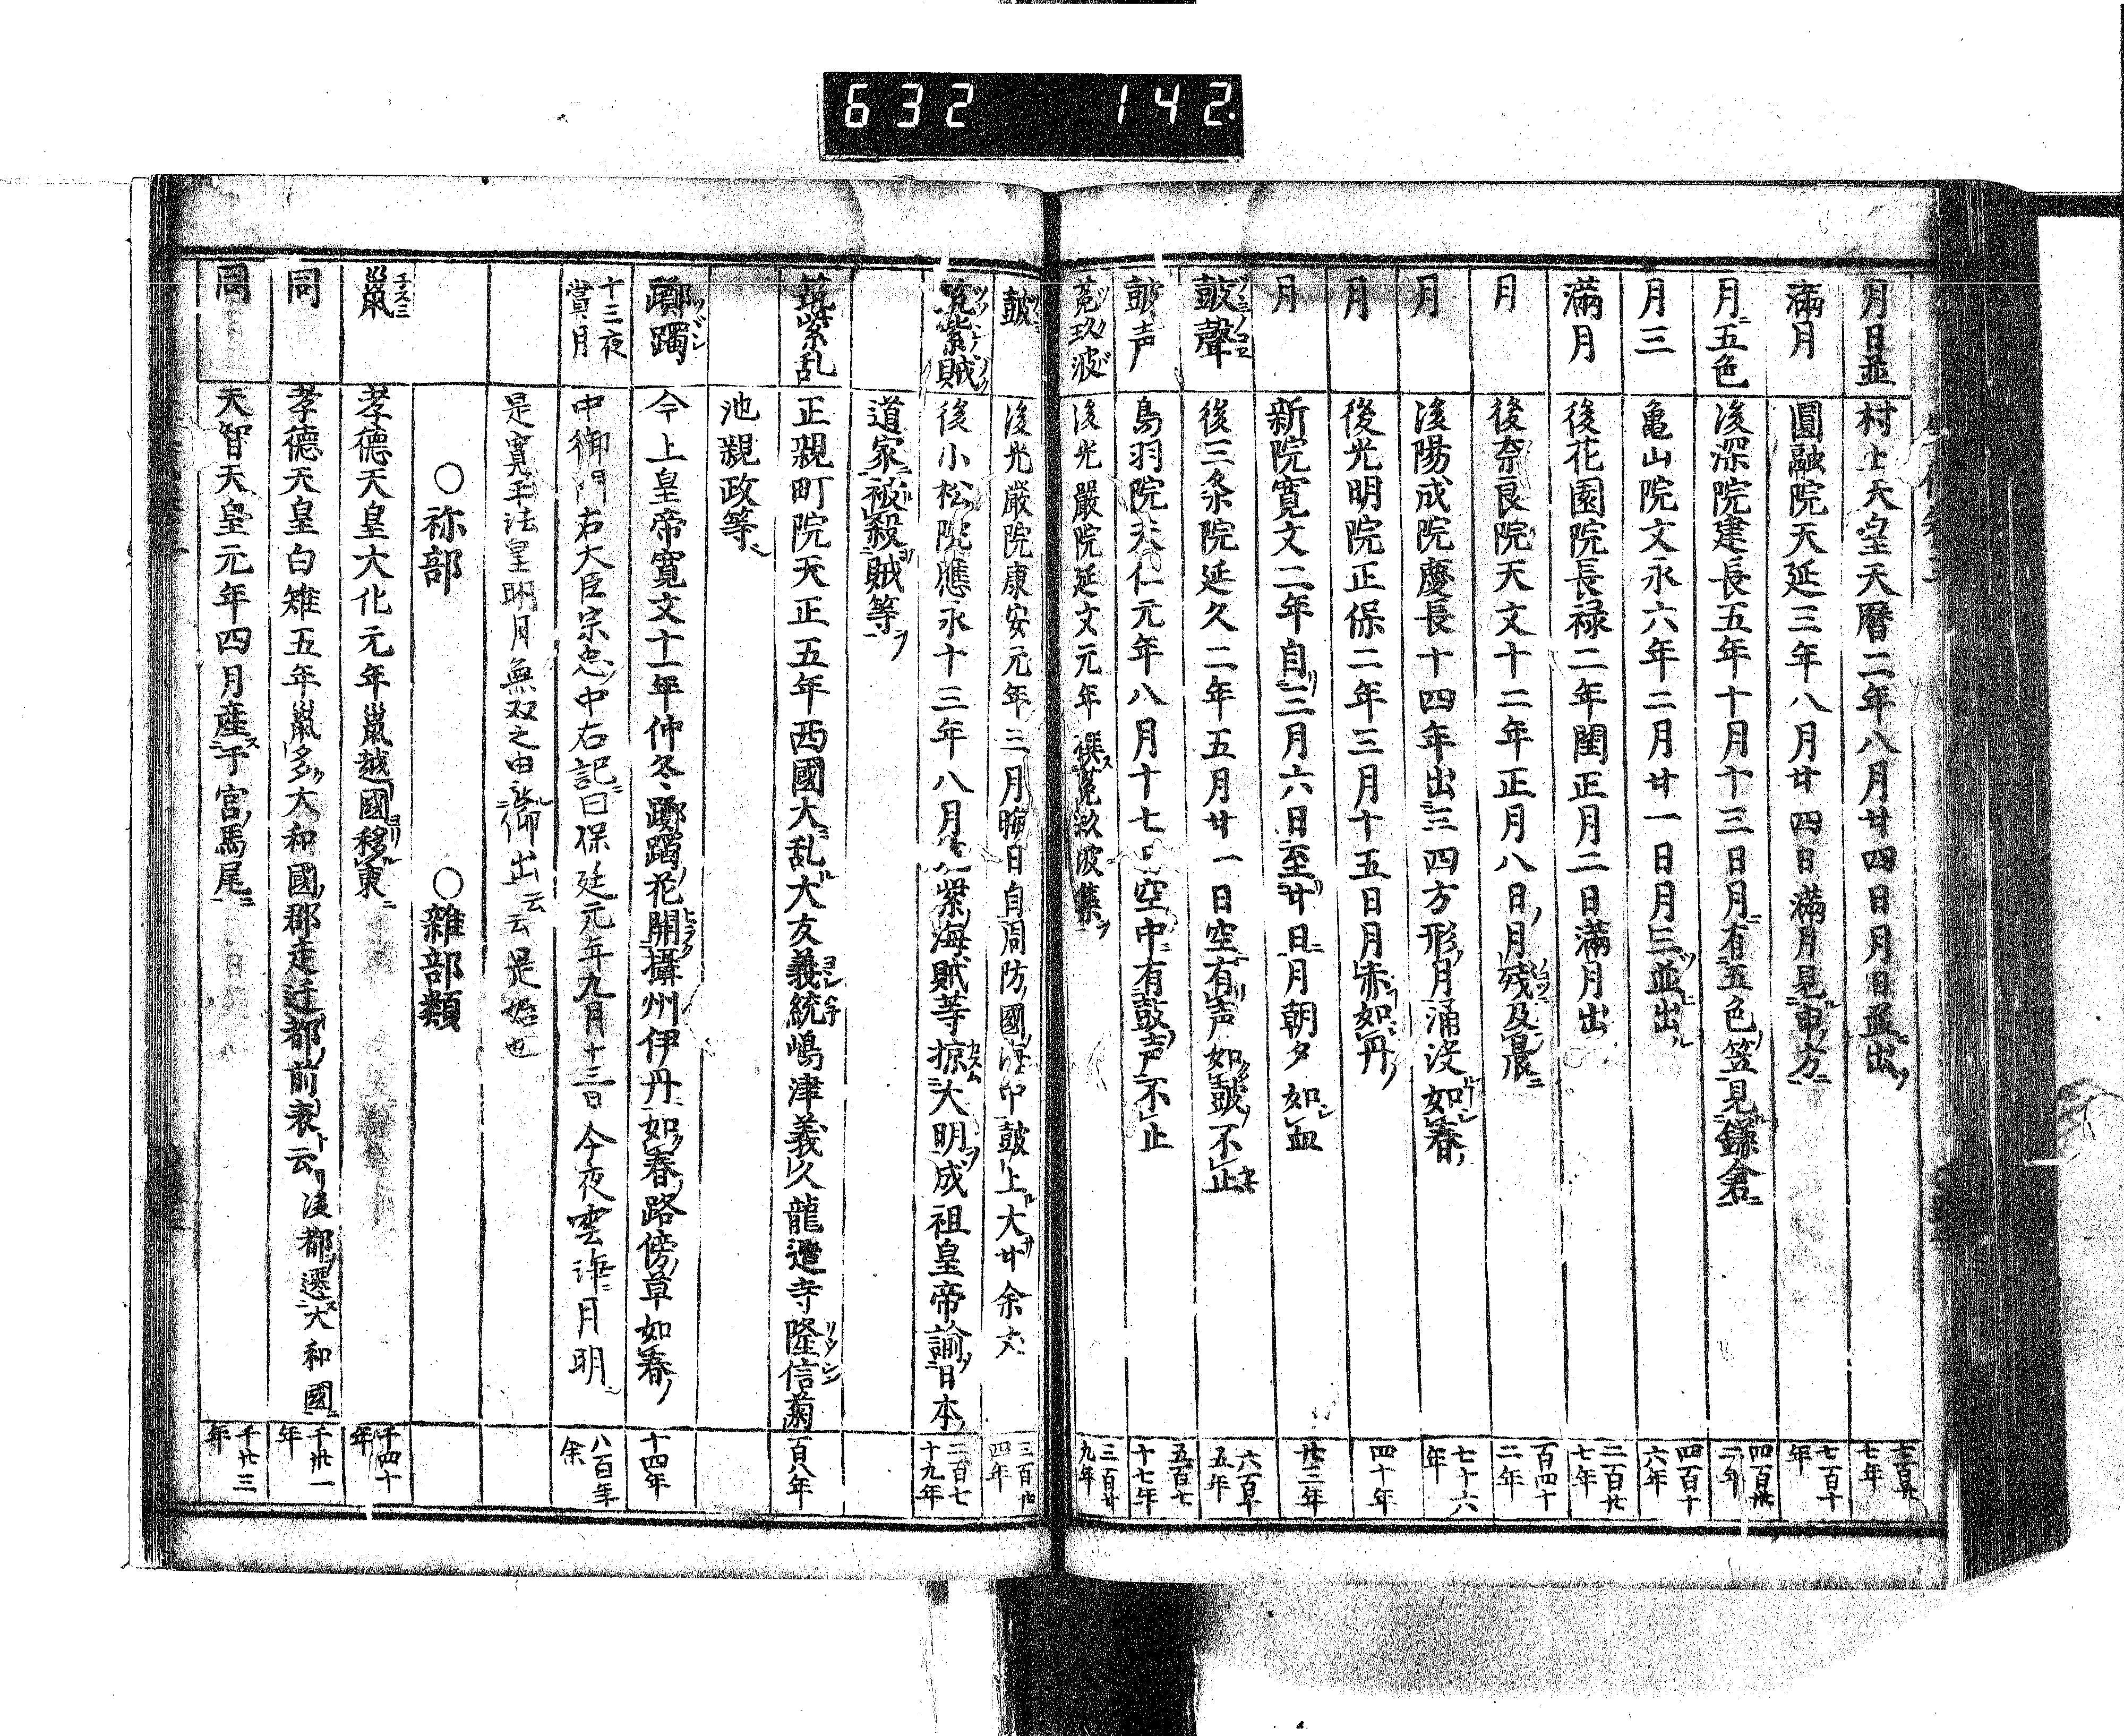 632 142
月日並 村上天皇天暦二年八月廿四日月日並出 七百廿七年
滿月 圓融院天延三年八月廿四日滿月見申方 七百十年
月五色 後深院建長五年十月十三日月有五色笠見鎌倉
月三 亀山院文永六年二月廿一日月三並出 四百十六年
滿月 後花園院長禄二年閏正月二日滿月出 二百廿七年
月 後奈良院天文十二年正月八日月残及晨 百四十二年
月 後陽成院慶長十四年出三四方形月涌没如舂 七十六年
月 後光明院正保二年三月十五日月赤如丹 四十年
月 新院寛文二年自三月六日至廿日月朝夕如血 廿二年
鼓聲 後三条院延久二年五月廿一日空有声如鼓不止 六百十五年
鼓声 鳥羽院天仁元年八月十七日空中有鼓声不止 五百七十七年
菟玖波 後光嚴院延文元年撰菟玖波集 三百廿九年
鼓 後光厳院康安元年三月晦日自周防國 鼓上大廿余丈 三百廿四年
筑紫賊 後小松院應永十三年八月 紫海賊等掠大明成祖皇帝諭日本 二百七十九年
道家被殺賊等
筑紫乱 正親町院天正五年西國大乱大友義統嶋津義久龍造寺隆信菊 百八年
池親政等
躑躅 今上皇帝寛文十一年仲冬躑躅花開攝州伊丹如春路傍草如春 十四年
十三夜賞月 中御門右大臣宗忠中右記曰保延元年九月十三日今夜雲海月明 八百年余
是寛平法皇明月無双之由 仰出云云是始也
○祢部 ○雜部類
巣鼠 孝德天皇大化元年巣鼠越國移東 千四十年
同 孝德天皇白雉五年巣鼠多大和國郡走迁都前表云後都遷大和國 千卅一年
同 天智天皇元年四月産于宮馬尾 千廿三年